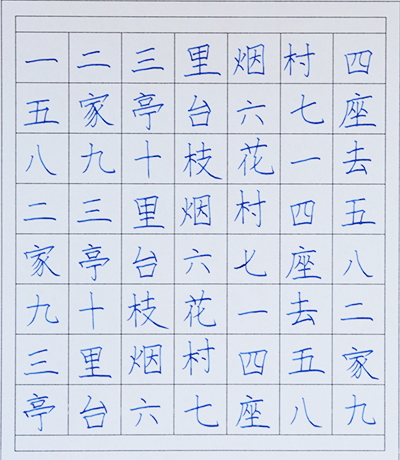 一二三里烟村四
五家亭台六七座
八九十枝花一去
二三里烟村四五
家亭台六七座八
九十枝花一去二
三里烟村四五家
亭台六七座八九